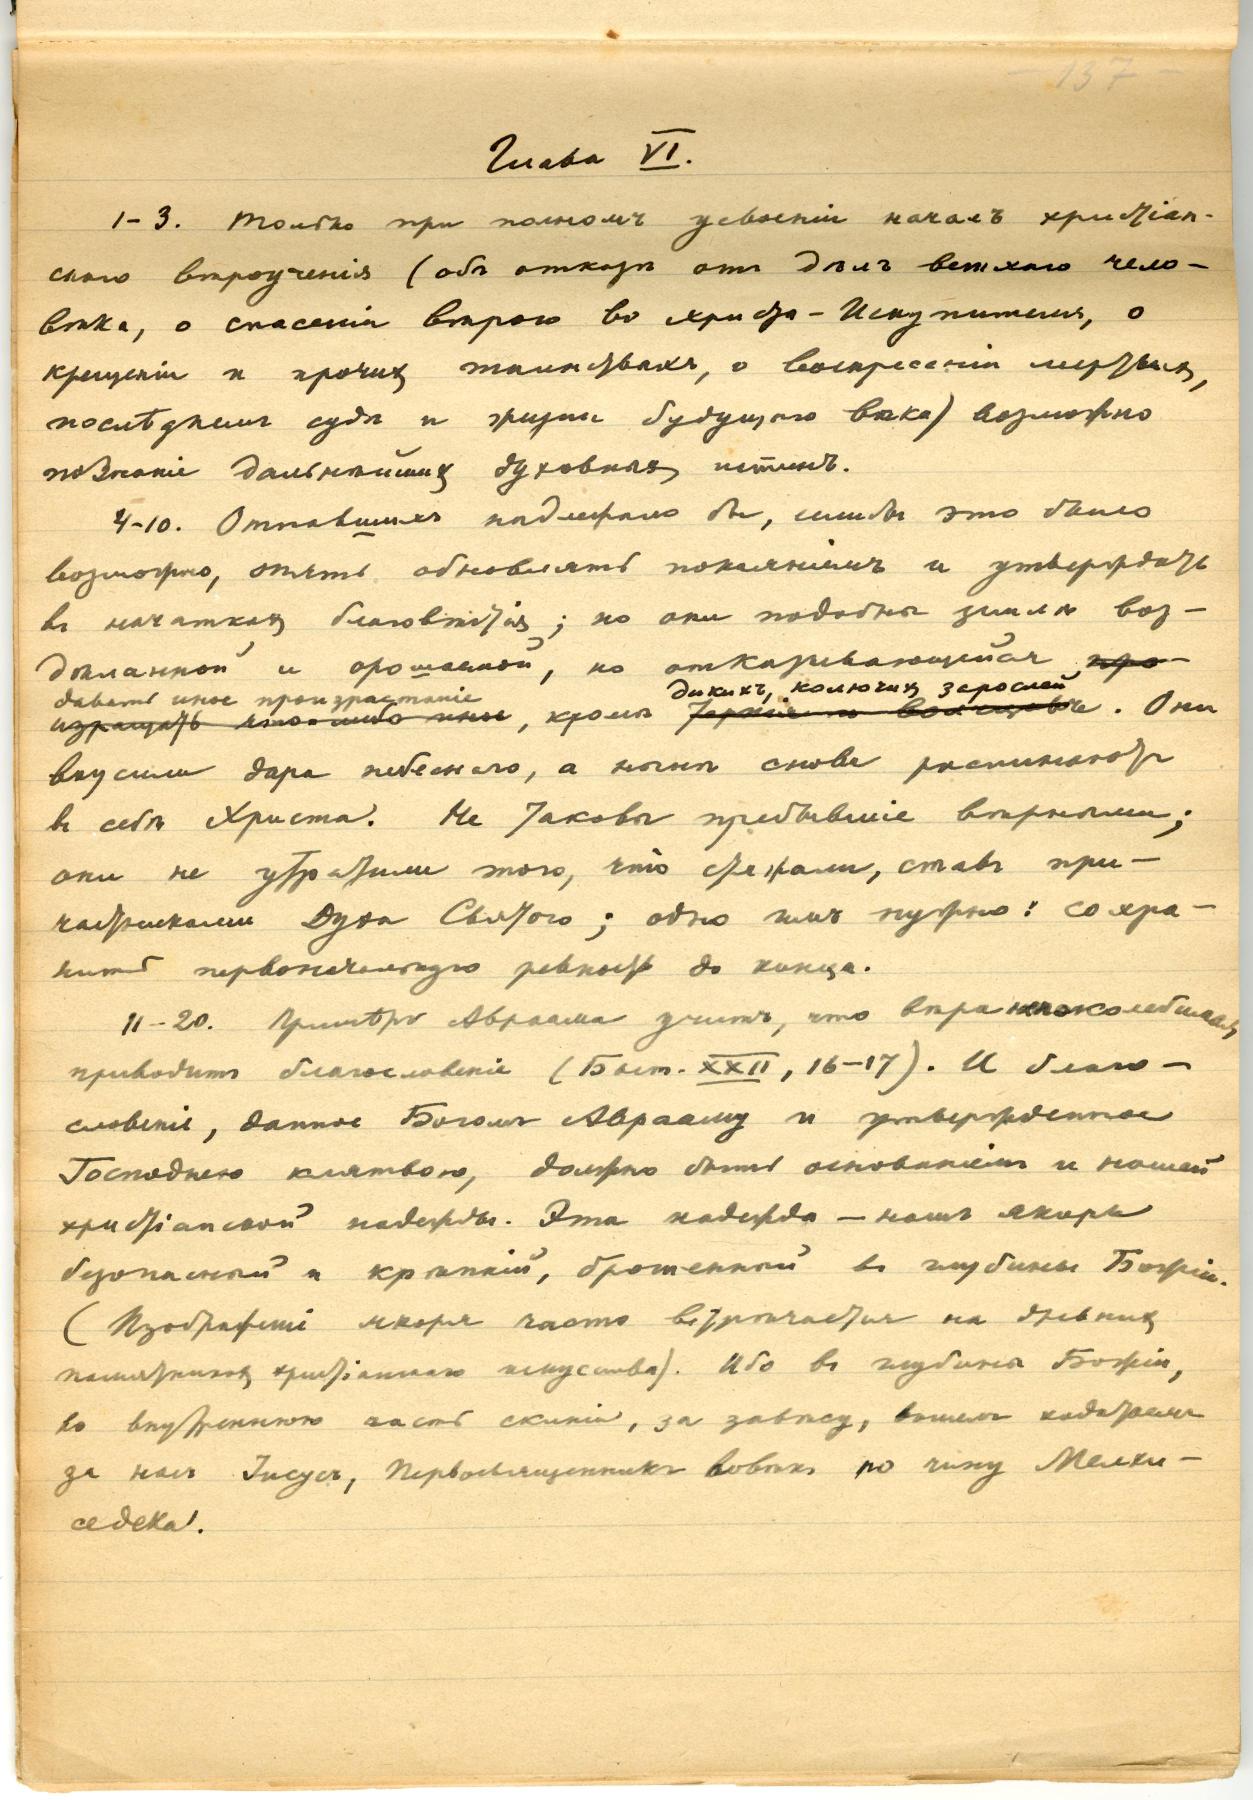 - 137 -
Глава VI.
1-3. Только при полномъ усвоеніи началъ христіан-
скаго вѣроученія (объ отказѣ отъ дѣлъ ветхаго чело-
вѣка, о спасеніи вѣрою во Христа-Искупителя, о
крещеніи и прочихъ таинствахъ, о воскресеніи мертвыхъ,
послѣднемъ судѣ и жизни будущаго вѣка) возможно
познаніе дальнѣйшихъ духовныхъ истинъ.
4-10. Отпавшихъ надлежало бы, если бы это было
возможно, опять обновлять покаяніемъ и утверждать
въ начаткахъ благовѣстія; но они подобны землѣ воз-
дѣланной и орошаемой, но отказывающейся про-
давать иное произрастаніе дикихъ, колючихъ зарослей
изращать что-либо иное, кромѣ тернія и волчцовъ. Они
вкусили дара небеснаго, а нынѣ снова распинаютъ
въ себѣ Христа. Не таковы пребывшіе вѣрными;
они не утратили того, что стяжали, ставъ при-
частниками Духа Святого; одно имъ нужно: сохра-
нить первоначальную ревность до конца.
11-20. Примѣръ Авраама учитъ, что вѣра непоколебимая
приводитъ благословеніе (Быт. XXII, 16-17). И благо-
словеніе, данное Богомъ Аврааму и утвержденное
Господнею клятвою, должно быть основаніемъ и нашей
христіанской надежды. Эта надежда - нашъ якорь
безопасный и крѣпкій, брошенный въ глубины Божіи.
(Изображеніе якоря часто встрѣчается на древнихъ
памятникахъ христіанскаго искусства). Ибо въ глубины Божіи,
во внутреннюю часть скиніи, за завѣсу, вошелъ ходатаемъ
за насъ Іисусъ, Первосвященникъ вовѣкъ по чину Мелхи-
седека.